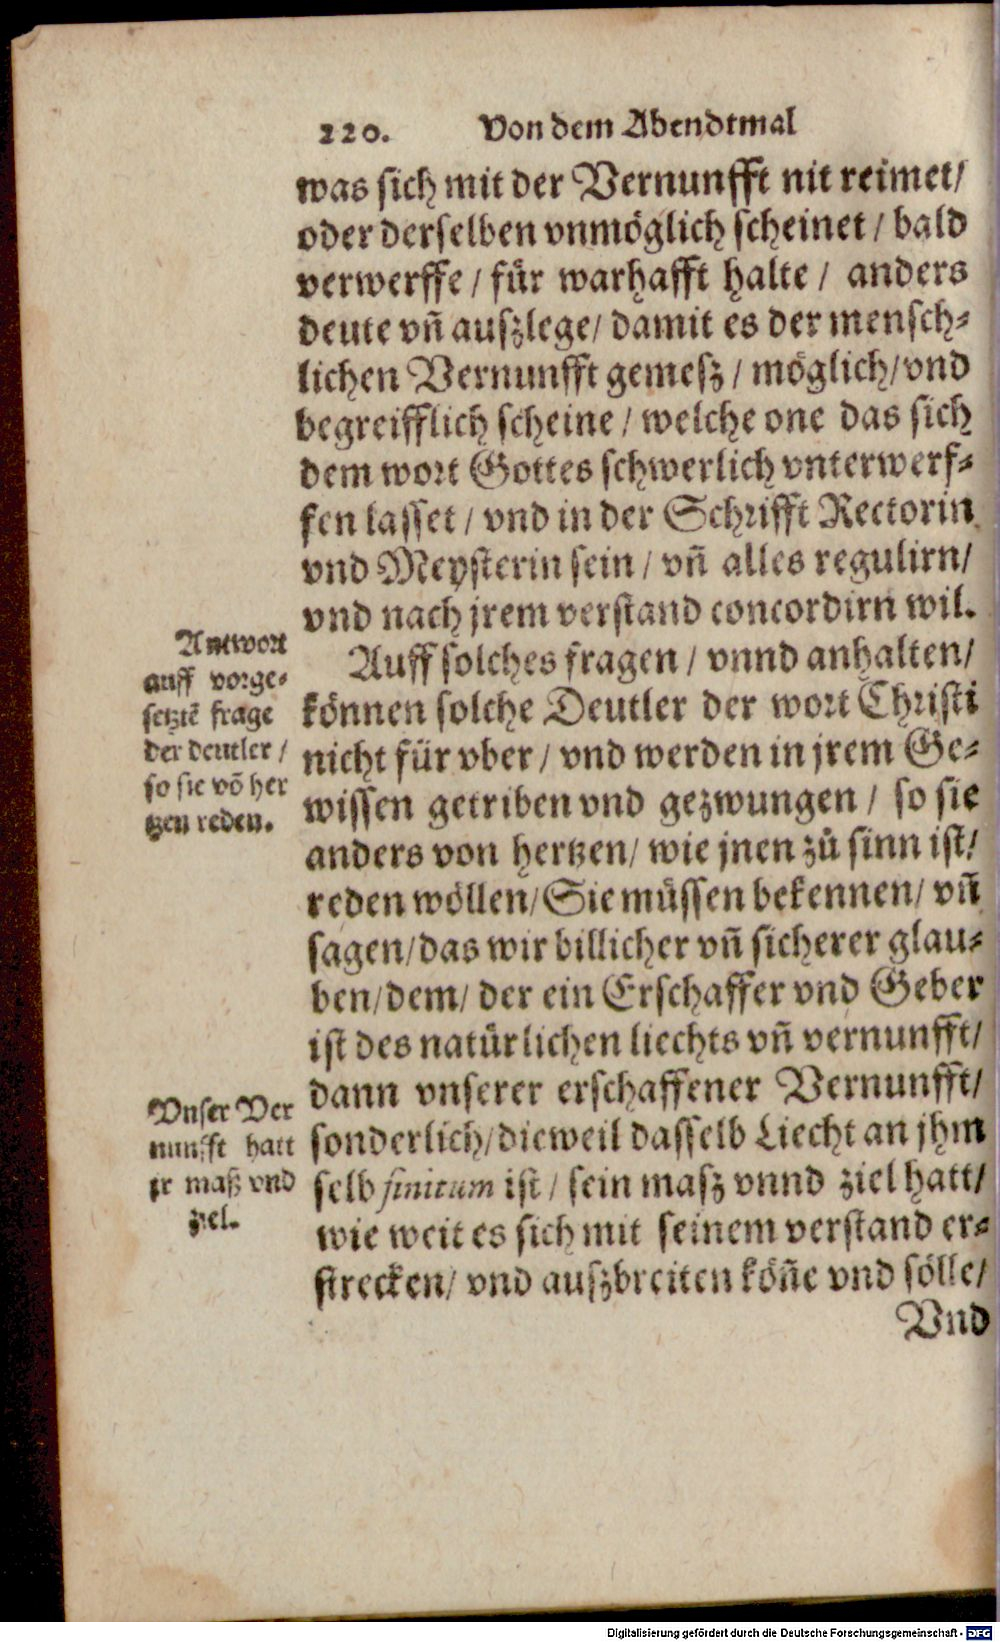 220. Von dem Abendtmal
was sich mit der Vernunfft nit reimet/
oder derselben vnmöglich scheinet / bald
verwerffe / für warhafft halte / anders
deute vñ auszlege/ damit es der mensch-
lichen Vernunfft gemesz / möglich/ vnd
begreifflich scheine / welche one das sich
dem wort Gottes schwerlich vnterwerf-
fen lasset / vnd in der Schrifft Rectorin
vnd Meysterin sein / vñ alles regulirn/
vnd nach jrem verstand concordirn wil.
Auff solches fragen / vnnd anhalten/
können solche Deutler der wort Christi
nicht für vber / vnd werden in jrem Ge-
wissen getriben vnd gezwungen / so sie
anders von hertzen/ wie jnen zů sinn ist/
reden wöllen/ Sie müssen bekennen/ vñ
sagen/ das wir billicher vñ sicherer glau-
ben/ dem/ der ein Erschaffer vnd Geber
ist des natürlichen liechts vñ vernunfft/
dann vnserer erschaffener Vernunfft/
sonderlich/ dieweil dasselb Liecht an jhm
selb finitum ist / sein masz vnnd ziel hatt/
wie weit es sich mit seinem verstand er-
strecken/ vnd auszbreiten köñe vnd sölle/
Vnd
Antwort
auff vorge-
setztē frage
der deutler /
so sie võ her
tzen reden.
Vnser Ver
nunfft hatt
jr maß vnd
ziel.
Digitalisierung gefördert durch die Deutsche Forschungsgemeinschaft - DFG